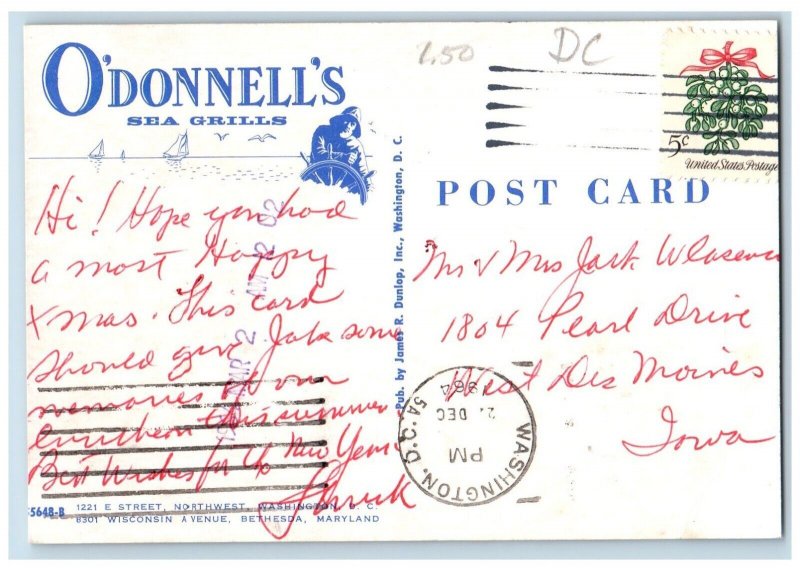 O'DONNELL'S
SEA GRILLS
1.50
DC
5c
United States Postage
POST CARD
Hi! Hope you had
a most Happy
Xmas. This card
should give Jack some
memories of our
luncheon this summer
Best Wishes for New Year
Mr & Mrs Jack
1804 Pearl Drive
West Des Moines
Iowa
WASHINGTON, D.C.
PM
DEC
1964
Pub. by James R. Dunlop, Inc., Washington, D. C.
5648-B
1221 E STREET, NORTHWEST, WASHINGTON D. C.
6301 WISCONSIN AVENUE, BETHESDA, MARYLAND